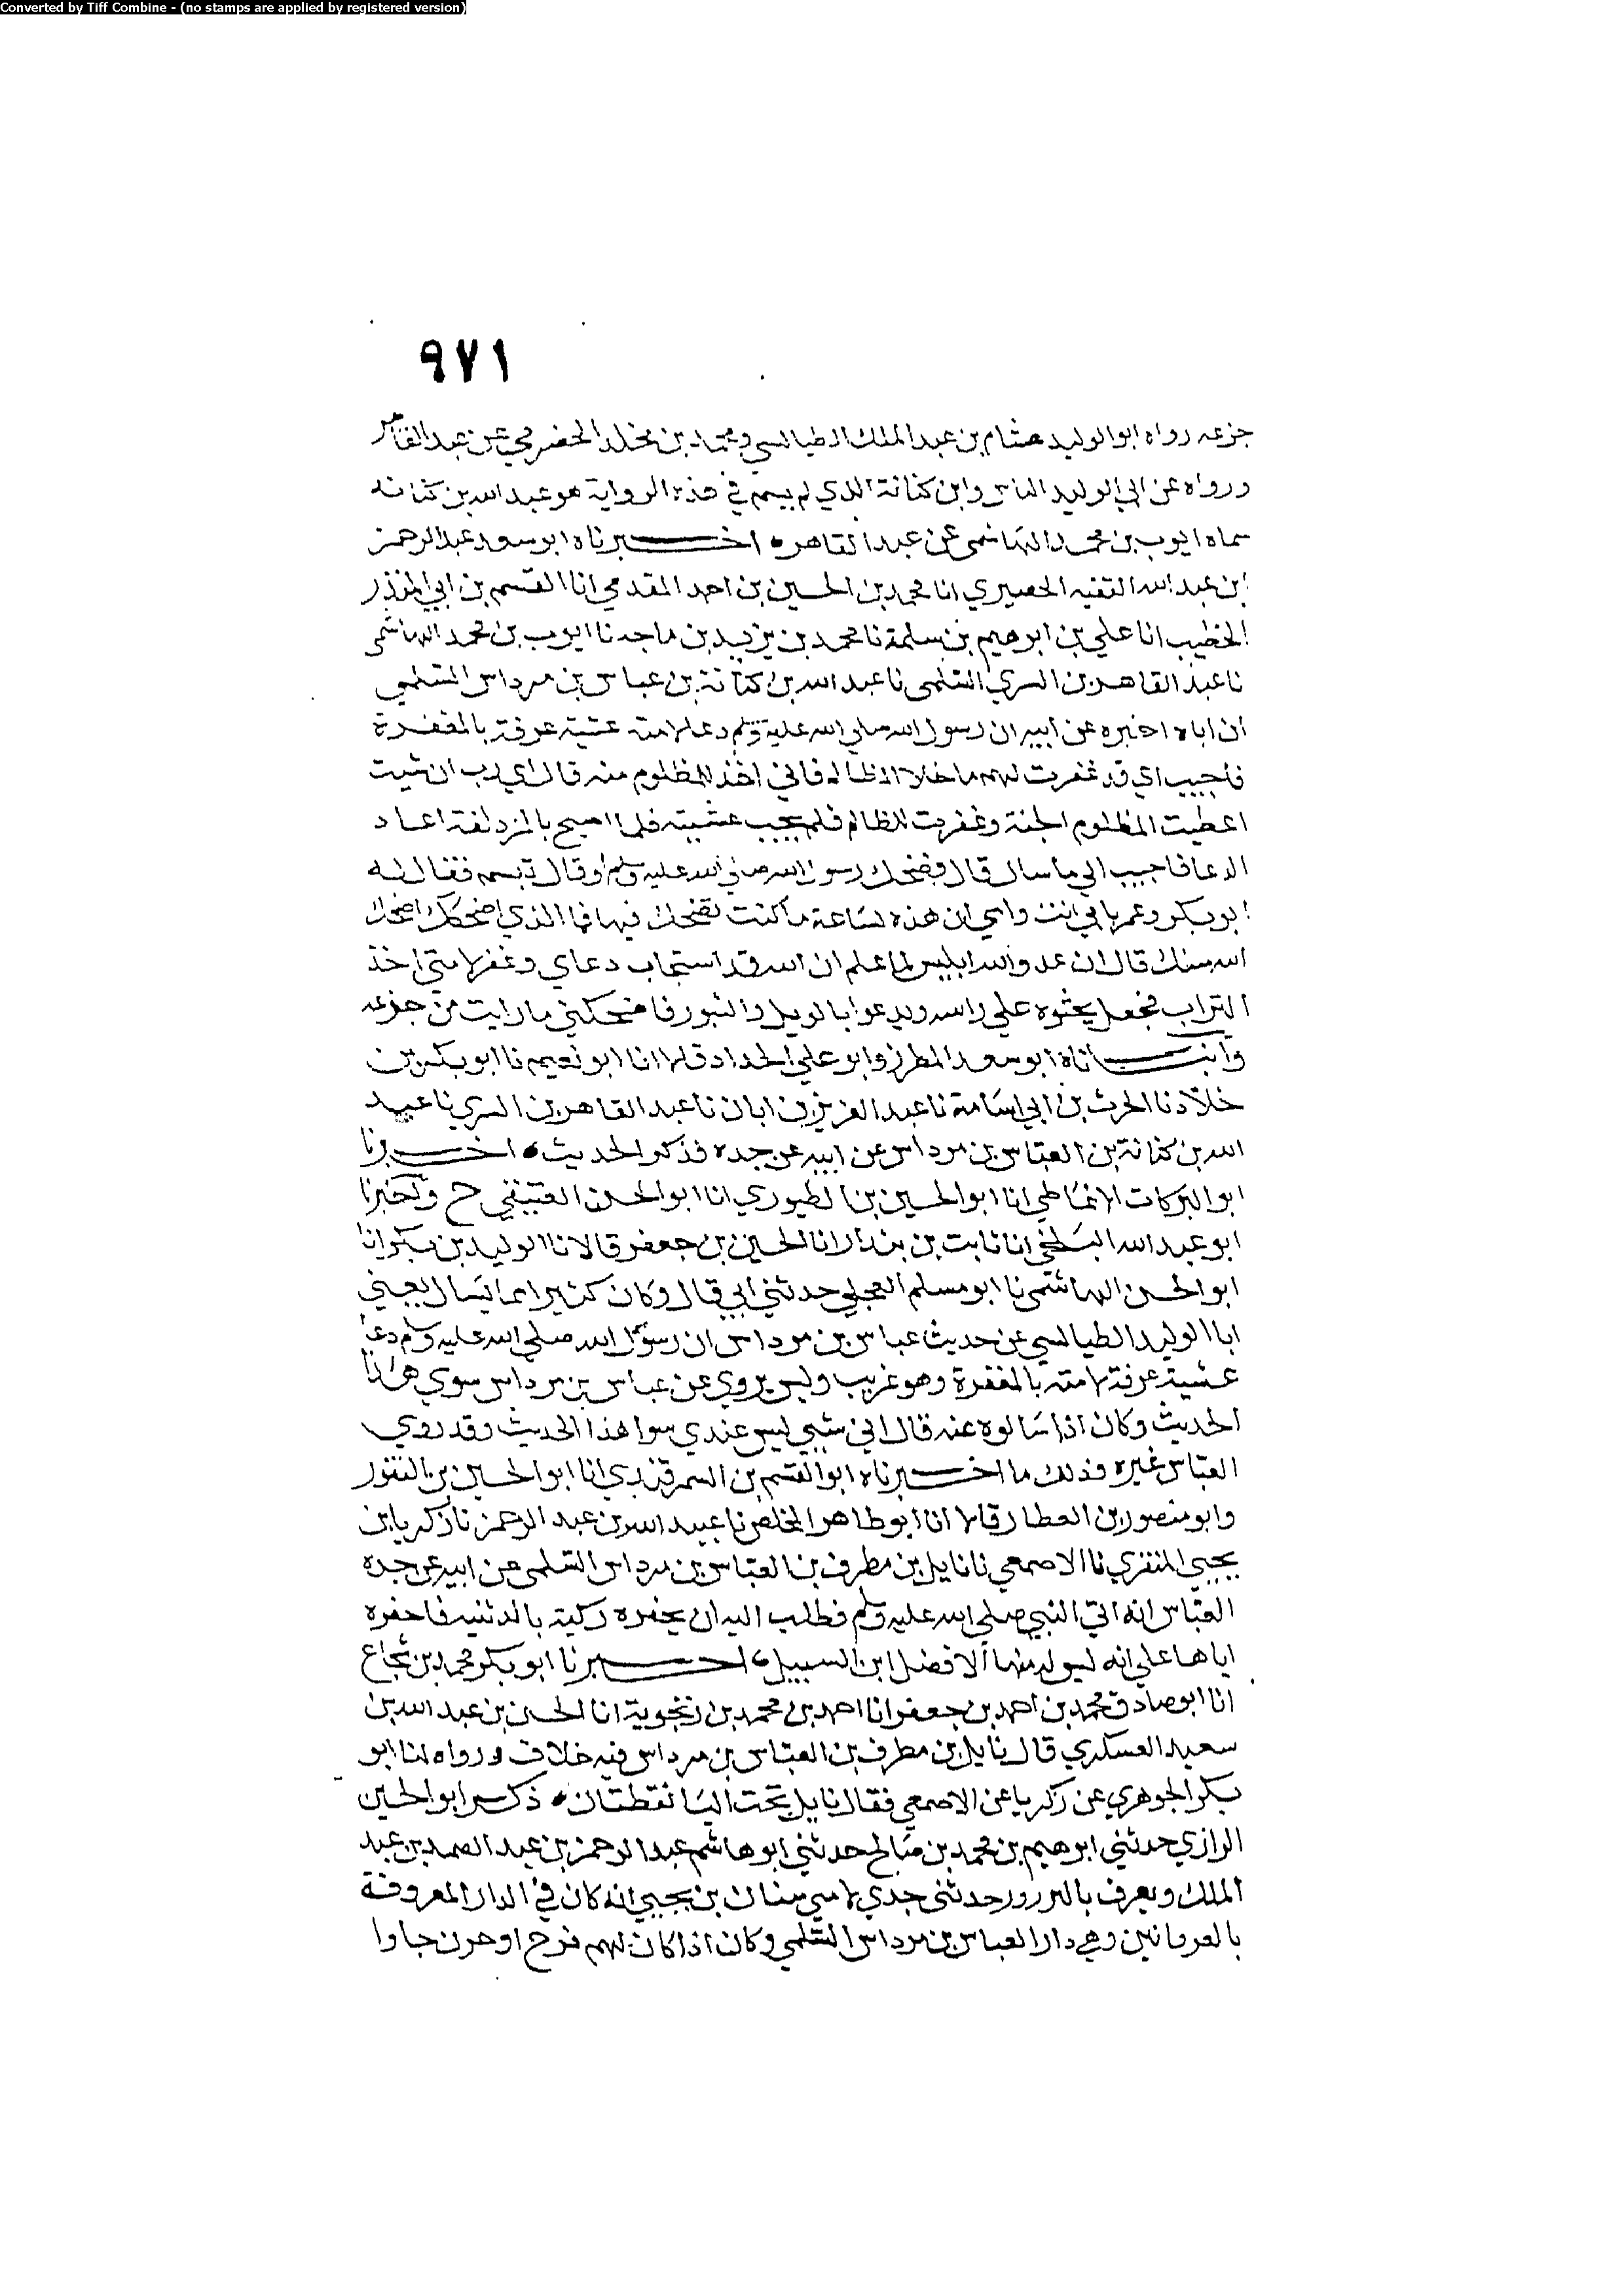 Converted by Tiff Combine - (no stamps are applied by registered version)
٩٧١
جزعه رواه ابو الوليد هشام بن عبد الملك الطيالسي ومحمد بن مخلد الحضرمي عن عبد القاهر
ورواه عن ابي الوليد الناس وابن كنانة الذي لم يسم في هذه الرواية هو عبد الله بن كنانه
سماه ايوب بن محمد الهاشمي عن عبد القاهر اخبرناه ابو سعد عبد الرحمن
ابن عبد الله الفقيه الحصيري انا محمد بن الحسين بن احمد المقدمي انا القسم بن ابي المنذر
الخطيب انا علي بن ابرهيم بن سلمة نا محمد بن يزيد بن ماجه نا ايوب بن محمد الهاشمي
نا عبد القاهر بن السري السلمي نا عبد الله بن كنانة بن عباس بن مرداس السلمي
ان اباه اخبره عن ابيه ان رسول الله صلي الله عليه وسلم دعا لامته عشية عرفة بالمغفرة
فاجيب اي قد غفرت لهم ما خلا الظالم فاني اخذ للمظلوم منه قال اي رب ان شيت
اعطيت المظلوم الجنة وغفرت للظالم فلم يجب عشيته فلما اصبح بالمزدلفة اعاد
الدعا فاجيب الي ما سال قال فضحك رسول الله صلي الله عليه وسلم او قال تبسم فقال له
ابو بكر وعمر بابي انت وامي ان هذه لساعة ما كنت تضحك فيها فما الذي اضحكك اضحك
الله سنك قال ان عدو الله ابليس لما علم ان الله قد استجاب دعاي وغفر لامتي اخذ
التراب فجعل يحثوه علي راسه ويدعوا بالويل والثبور فاضحكني ما رايت من جزعه
وانبــاناه ابو سعد المطرز وابو علي الحداد قالا انا ابو نعيم نا ابو بكر بن
خلاد نا الحرث بن ابي اسامة نا عبد العزيز بن ابان نا عبد القاهر بن السري نا عبيد
الله بن كنانة بن العباس بن مرداس عن ابيه عن جده فذكر الحديث اخبرنا
ابو البركات الانماطي انا ابو الحسين بن الطيوري انا ابو الحسن العتيقي ح واخبرنا
ابو عبد الله البلخي انا ثابت بن بندار انا الحسين بن جعفر قالا نا الوليد بن بكر انا
ابو الحسن الهاشمي نا ابو مسلم العجلي حدثني ابي قال وكان كثيرا مما يسال يعني
ابا الوليد الطيالسي عن حديث عباس بن مرداس ان رسول الله صلي الله عليه وسلم دعا
عشية عرفة لامته بالمغفرة وهو غريب وليس يروي عن عباس بن مرداس سوي هذا
الحديث وكان اذا سالوه عنه قال اي شي ليس عندي سوا هذا الحديث وقد روي
العباس غيره فذلك ما اخبرناه ابو القسم بن السمرقندي انا ابو الحسين بن النقور
وابو منصور بن العطار قالا انا ابو طاهر المخلص نا عبيد الله بن عبد الرحمن نا زكريا بن
يحيي المنقري نا الاصمعي نا نايل بن مطرف بن العباس بن مرداس السلمي عن ابيه عن جده
العباس انه اتي النبي صلي الله عليه وسلم فطلب اليه ان يحفره ركية بالدثنيه فاحفره
اياها علي انه ليس له منها الا فضل ابن السبيل اخبرنا ابو بكر محمد بن شجاع
انا ابو صادق محمد بن احمد بن جعفر انا احمد بن محمد بن زنجوية انا الحسن بن عبد الله بن
سعيد العسكري قال نايل بن مطرف بن العباس بن مرداس فيه خلاف ورواه لنا ابو
بكر الجوهري عن زكريا عن الاصمعي فقال نايل تحت اليا نقطتان ذكر ابو الحسين
الرازي حدثني ابرهيم بن محمد بن صالح حدثني ابو هاشم عبد الرحمن بن عبد الصمد بن عبد
الملك ويعرف بالبرور حدثني جدي لامي سنان بن يحيي انه كان في الدار المعروفة
بالعرمانين وهي دار العباس بن مرداس السلمي وكان اذا كان لهم فرح او حزن جاوا